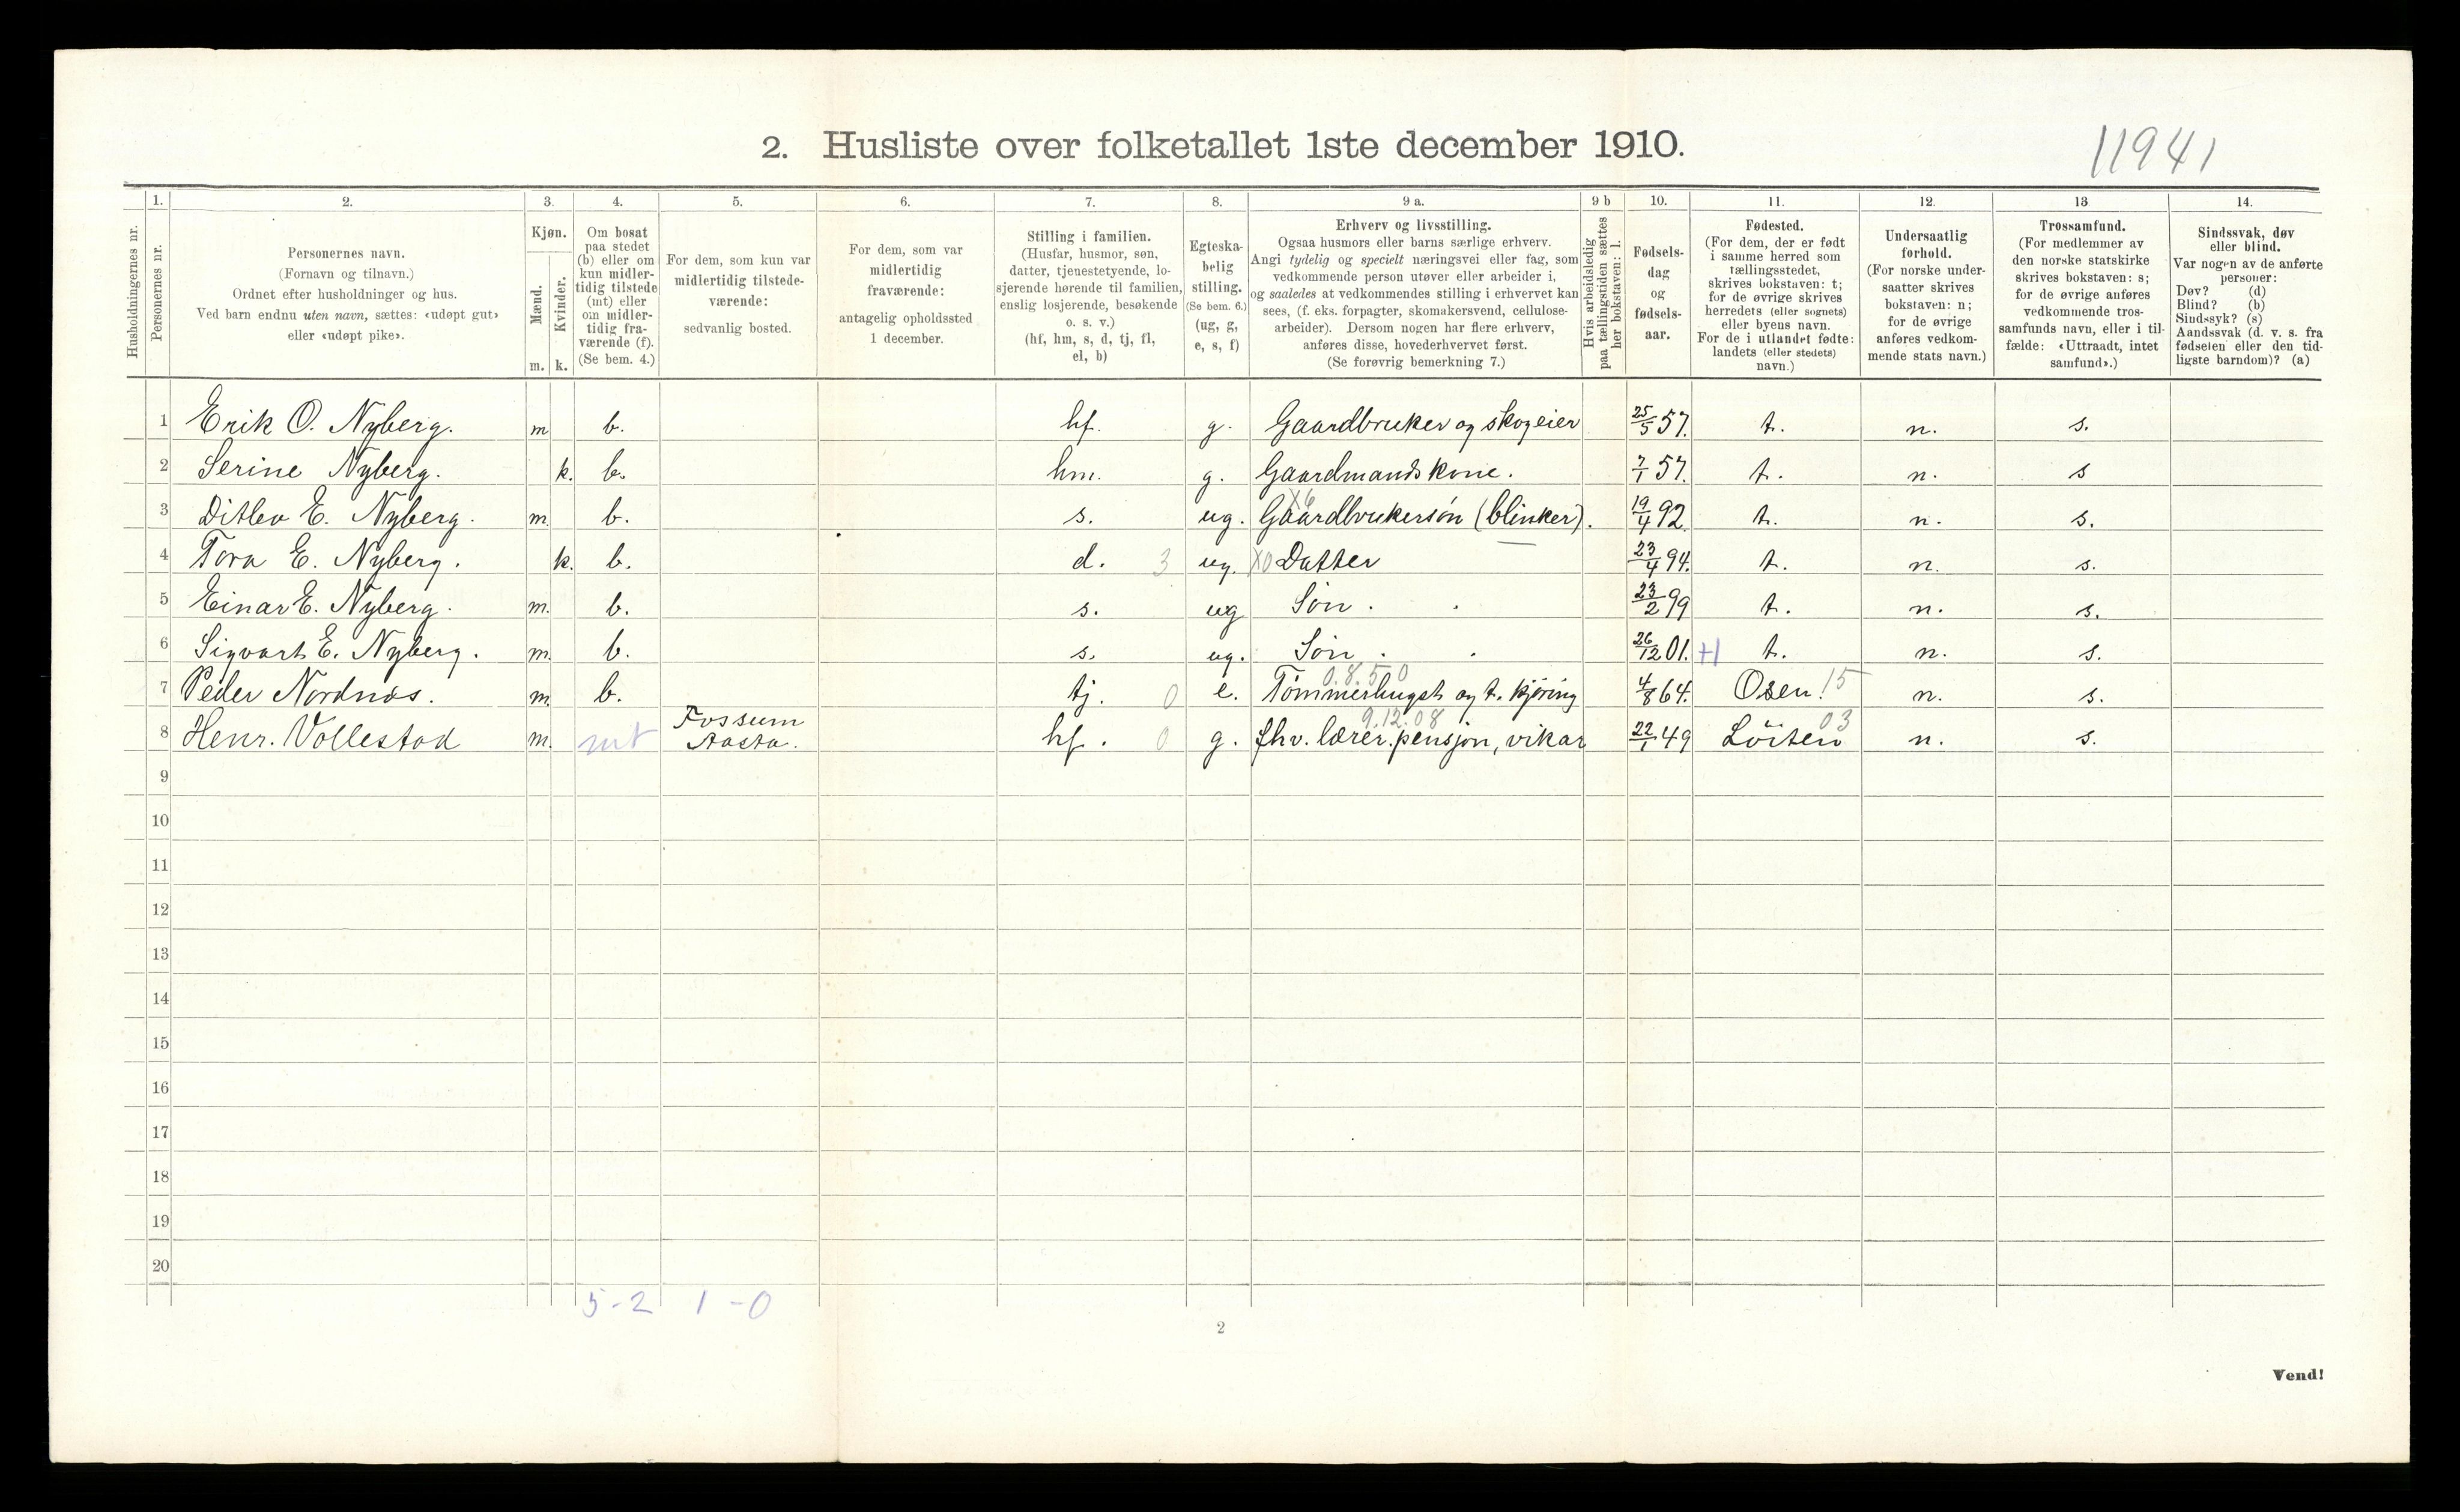 2. Husliste over folketallet 1ste december 1910.
11941
1. 2. 3. 4. 5. 6. 7. 8. 9 a. 9 b 10. 11. 12. 13 14.
Husholdningernes nr.
Personernes nr.
Personernes navn.
(Fornavn og tilnavn.)
Ordnet efter husholdninger og hus.
Ved barn endnu uten navn, sættes: «udøpt gut»
eller «udøpt pike».
Kjøn.
Mænd.
Kvinder.
m. k.
Om bosat
paa stedet
(b) eller om
kun midler-
tidig tilstede
(mt) eller
om midler-
tidig fra-
værende (f).
(Se bem. 4.)
For dem, som kun var
midlertidig tilstede-
værende:
sedvanlig bosted.
For dem, som var
midlertidig
fraværende:
antagelig opholdssted
1 december.
Stilling i familien.
(Husfar, husmor, søn,
datter, tjenestetyende, lo-
sjerende hørende til familien,
enslig losjerende, besøkende
o. s. v.)
(hf, hm, s, d, tj, fl,
el, b)
Egteska-
belig
stilling.
(Se bem. 6.)
(ug, g,
e, s, f)
Erhverv og livsstilling.
Ogsaa husmors eller barns særlige erhverv.
Angi tydelig og specielt næringsvei eller fag, som
vedkommende person utøver eller arbeider i,
og saaledes at vedkommendes stilling i erhvervet kan
sees, (f. eks. forpagter, skomakersvend, cellulose-
arbeider). Dersom nogen har flere erhverv,
anføres disse, hovederhvervet først.
(Se forøvrig bemerkning 7.)
Hvis arbeidsledig
paa tællingstiden sættes
her bokstaven: l.
Fødsels-
dag
og
fødsels-
aar.
Fødested.
(For dem, der er født
i samme herred som
tællingsstedet,
skrives bokstaven: t;
for de øvrige skrives
herredets (eller sognets)
eller byens navn.
For de i utlandet fødte:
landets (eller stedets)
navn.)
Undersaatlig
forhold.
(For norske under-
saatter skrives
bokstaven: n;
for de øvrige
anføres vedkom-
mende stats navn.)
Trossamfund.
(For medlemmer av
den norske statskirke
skrives bokstaven: s;
for de øvrige anføres
vedkommende tros-
samfunds navn, eller i til-
fælde: «Uttraadt, intet
samfund».)
Sindssvak, døv
eller blind.
Var nogen av de anførte
personer:
Døv? (d)
Blind? (b)
Sindssyk? (s)
Aandssvak (d. v. s. fra
fødselen eller den tid-
ligste barndom)? (a)
1 Erik O. Nyberg. m b. hf. g. Gaardbruker og skogeier 25/5 57. t. n. s.
2 Serine Nyberg. k. b. hm. g. Gaardmandskone. 7/1 57. t. n. s
X6
3 Ditlev E. Nyberg. m. b. s. ug. Gaardbrukersøn (blinker). 19/4 92 t. n. s.
4 Tora E. Nyberg. k. b. d. 3 ug. X0 Datter 23/4 94. t. n. s.
5 Einar E. Nyberg. m. b. s. ug Søn. 23/2 99 t. n. s.
6 Sigvart E. Nyberg. m. b. s. ug. Søn. 26/12 01. +1 t. n. s.
0.8.5 0
7 Peder Nordnæs. m. b. tj. 0 e. Tømmerhugst og t. kjøring 4/8 64. Osen. 15 n. s.
Fossum 9.12.08 03
8 Henr. Vollestad m. mt Aasta. hf. 0 g. fhv. lærer. pensjon, vikar 22/1 49 Löiten n. s.
9
10
11
12
13
14
15
16
17
18
19
20
5-2 1-0
2
Vend!